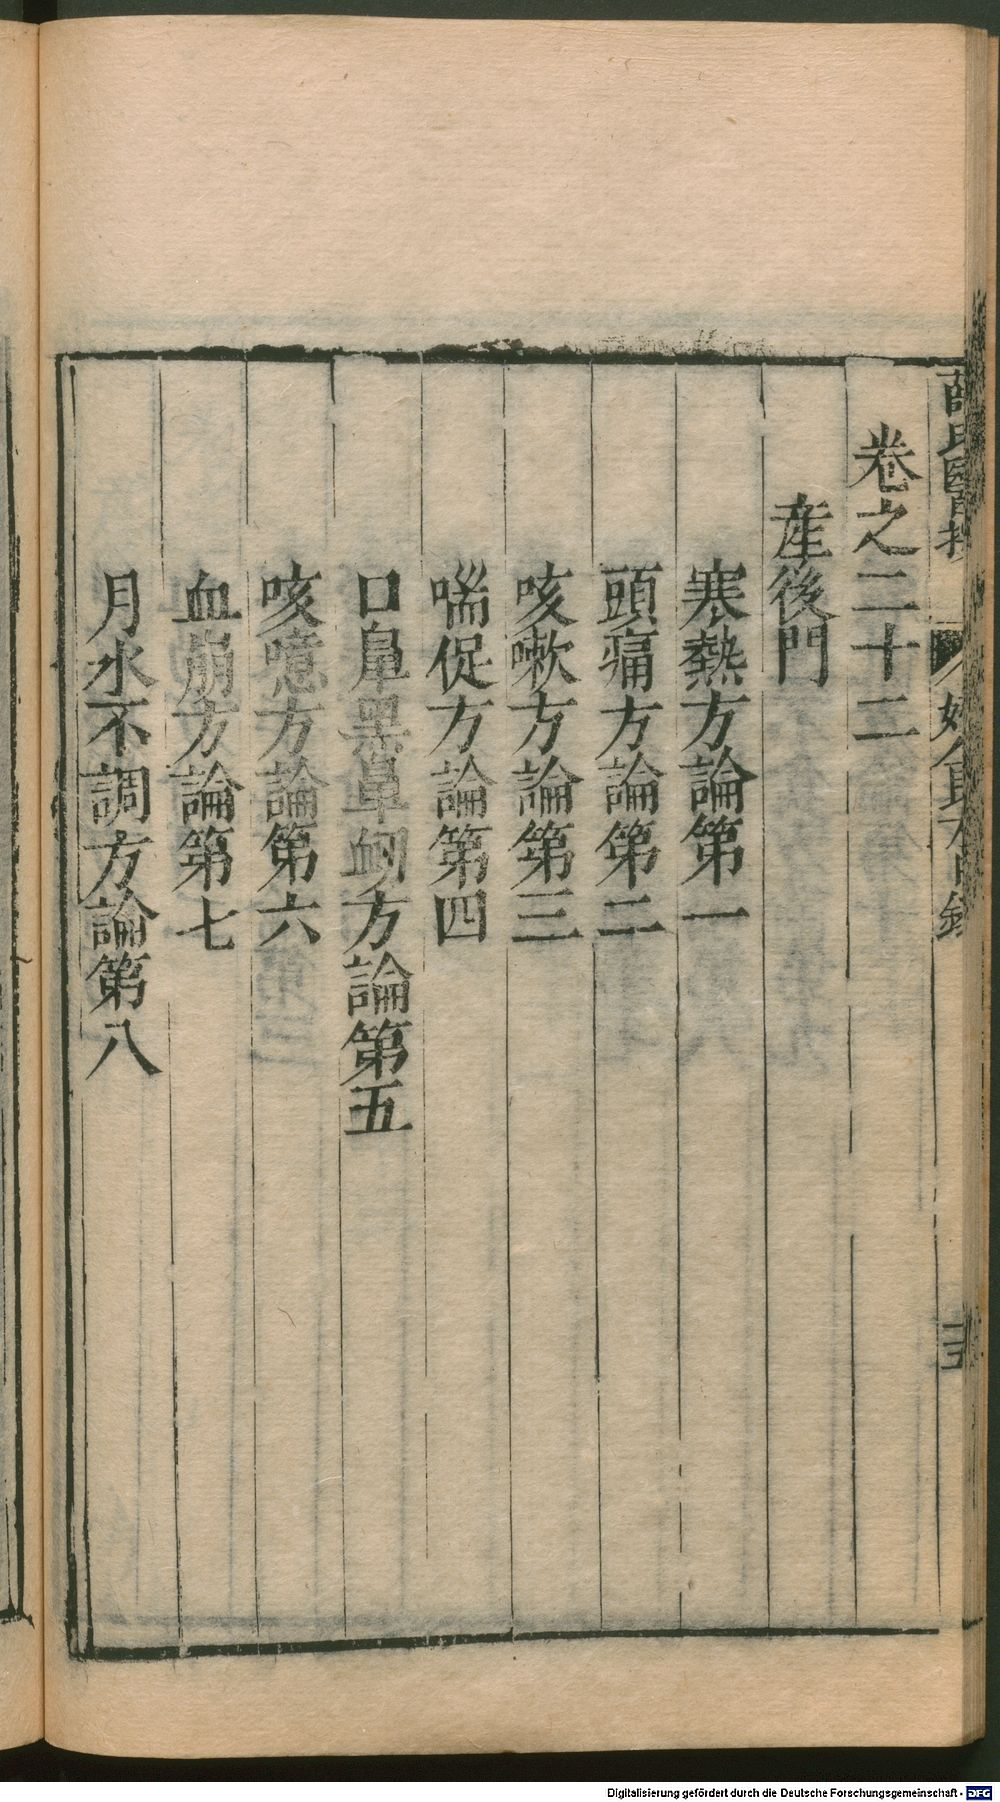 薛氏醫按
婦人良方目錄
卷之二十二
產後門
寒熱方論第一
頭痛方論第二
咳嗽方論第三
喘促方論第四
口鼻黑鼻衂方論第五
咳噫方論第六
血崩方論第七
月水不調方論第八
Digitalisierung gefördert durch die Deutsche Forschungsgemeinschaft - DFG